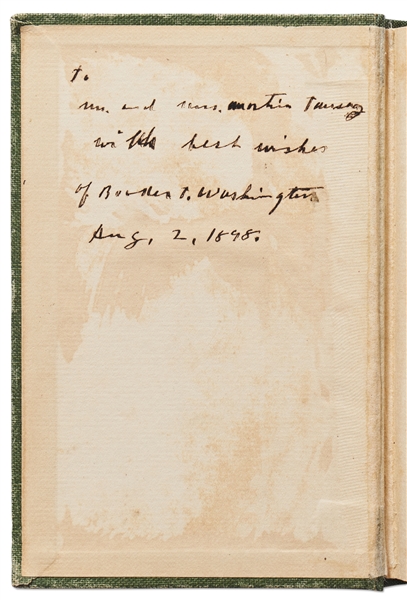 To
Mr. and Mrs. Martin
with best wishes
of Booker T. Washington
Aug, 2, 1898.